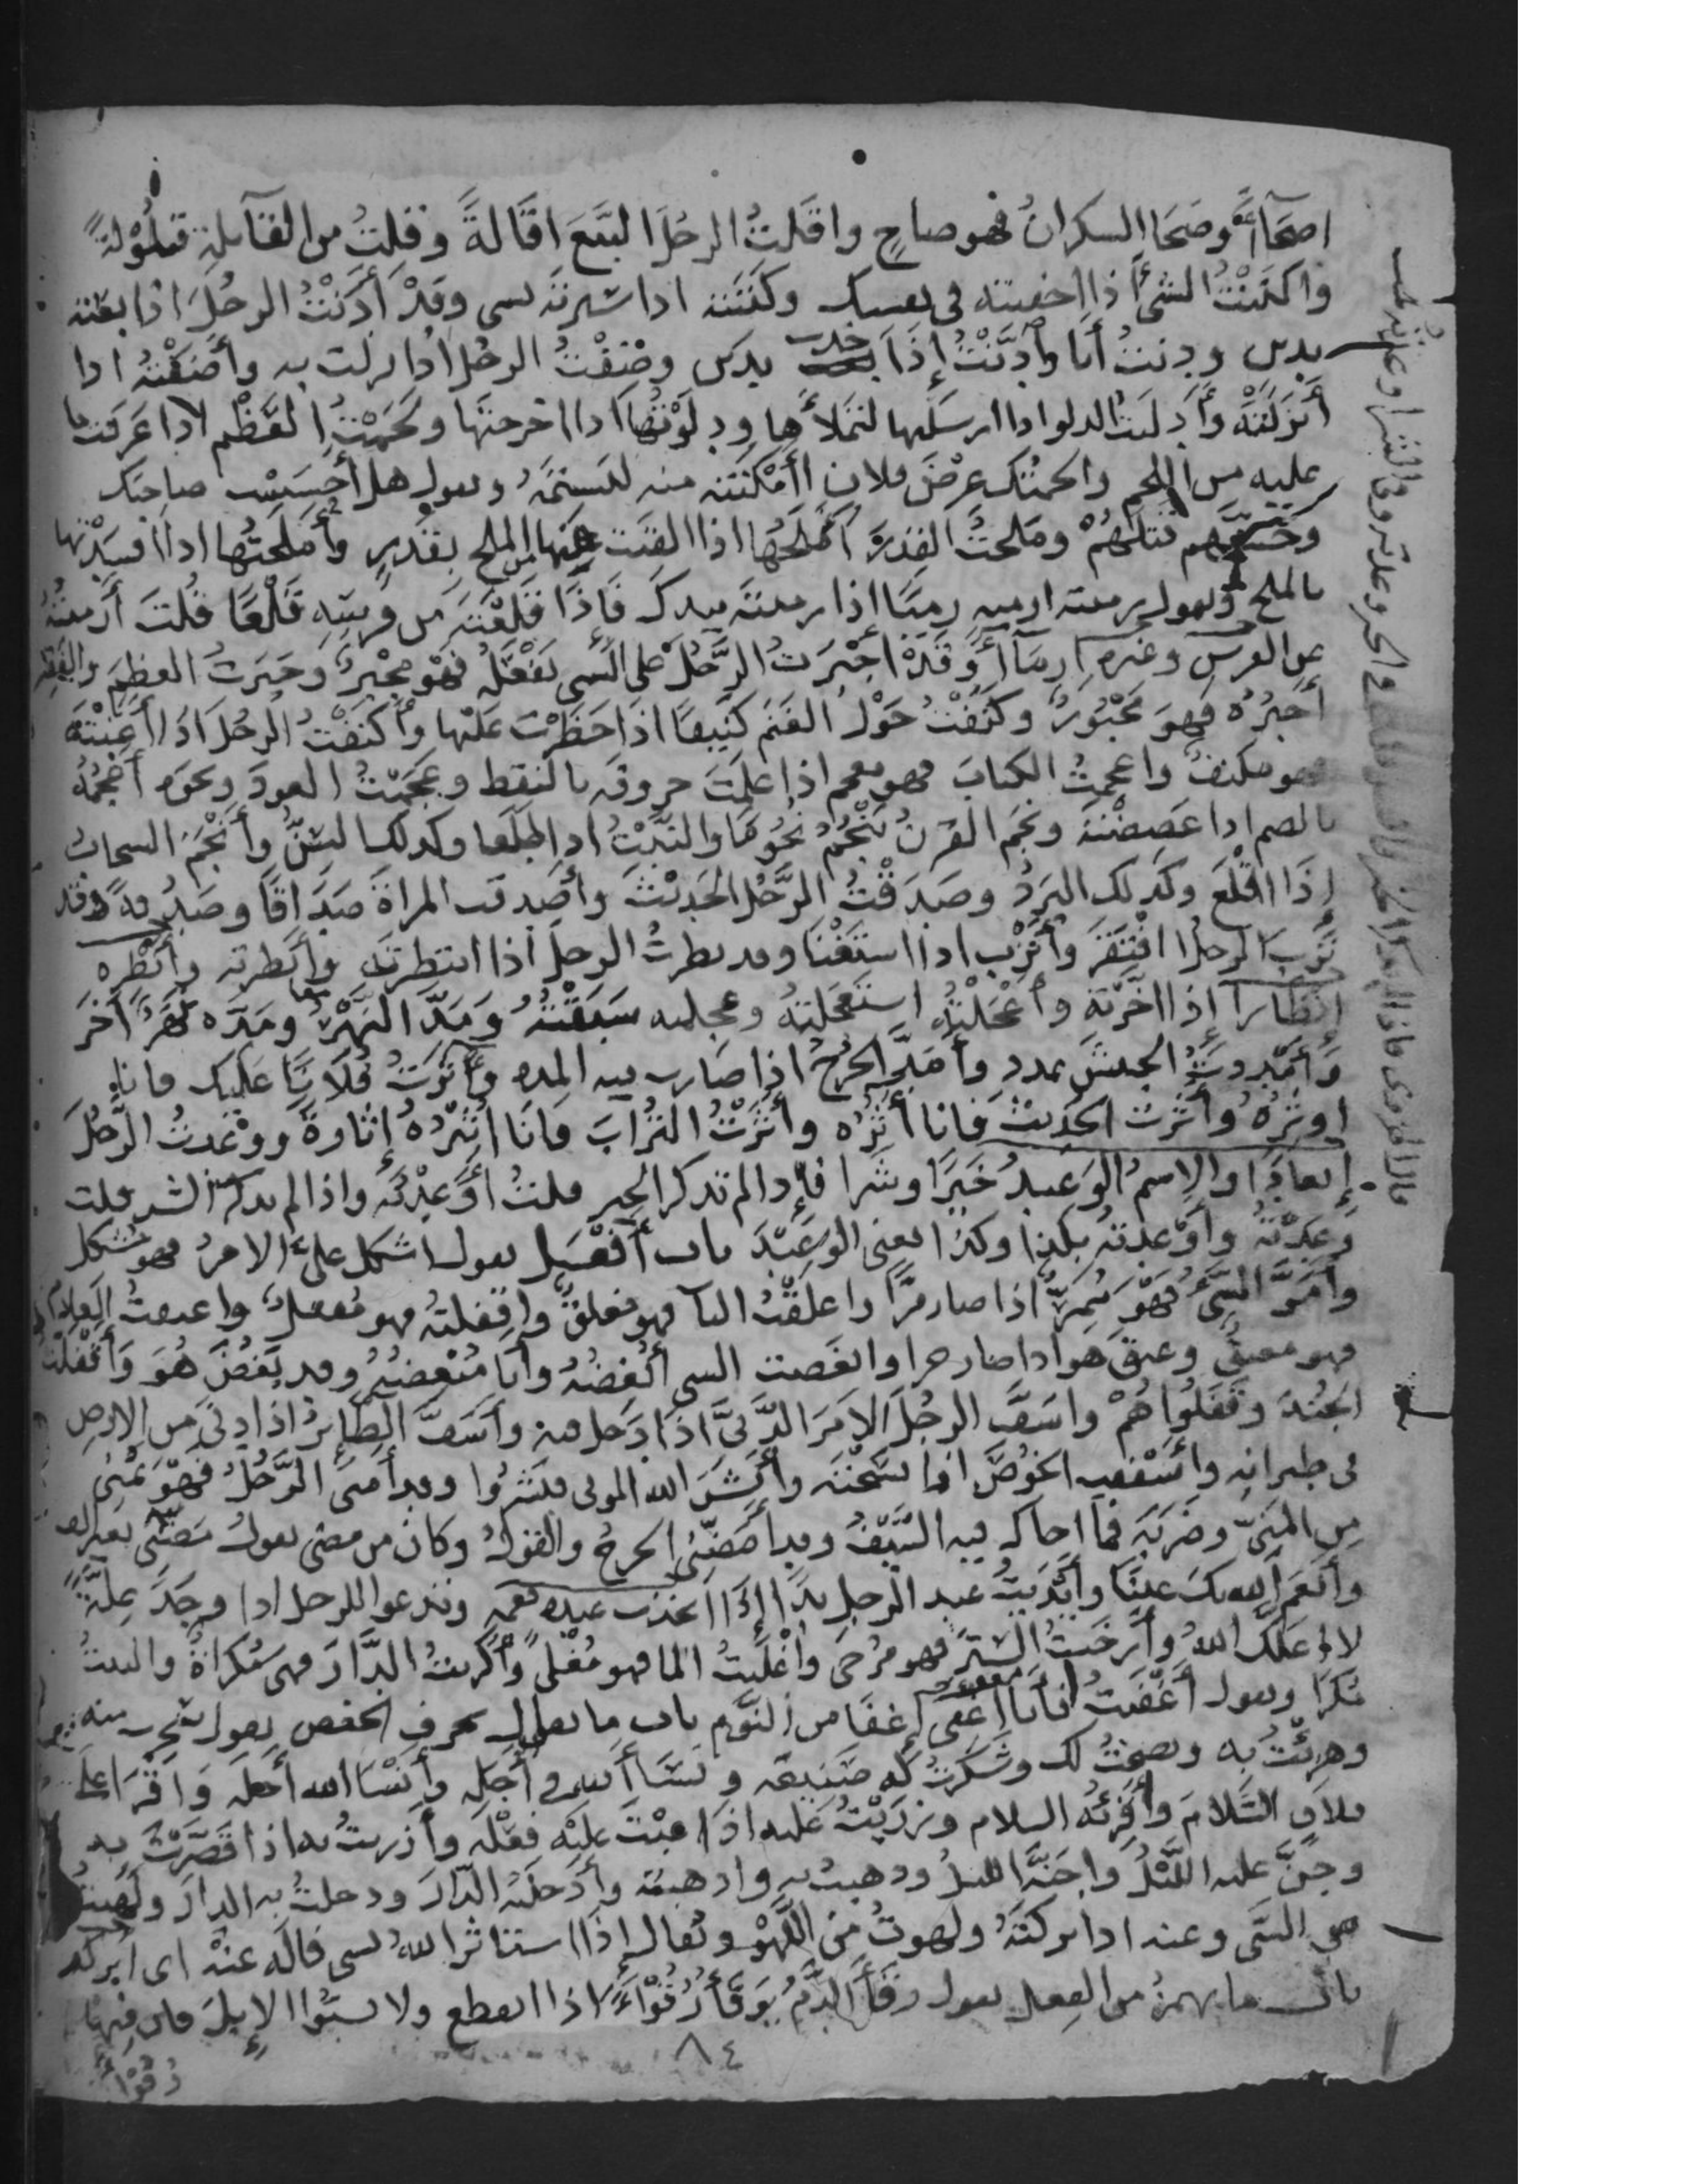 اصحاءً وصَحَا السكرانُ فهو صاحٍ واقَلتُ الرجُلَ البَيعَ اقَالةً وقِلتُ من القآيلةِ قيلُوْلةً
واكنَنْتُ الشئَ اذا اخفيته في نفسك وكَنَنته اذا سترته بشي وقَدْ أَدَنْتُ الرجُلَ اذا بعته
بدين ودِنتُ أنا وأدَّنْتُ إذَا اخذت بدين وضِفْتُ الرجُل اذا نزلت به وأضَفْتُه اذا
أَنزَلتَهُ وأَدلَيتُ الدلو اذا ارسَلتها لتملأها ودلَوْتُها اذا اخرجتها ولَحَمْتُ العَظْم اذا عَرَقت ما
عليه من اللحم والحمتُك عِرْضَ فلان اذا أمْكَنته منه لتَشتمَهُ وتقول هل أحسَسْت صاحبك
وحَسَّهم قتلَهُمْ ومَلَحتُ القِدرَ أملَحُها اذا القيت فيها من الملح بقَدرٍ وأملَحتُها اذا افسدْتها
بالملح وتقول رميته ارميه رميًا إذا رميته بيدك فَإذَا قلعْتَهَ من موضعه قَلْعًا قُلتَ أرميتُهُ
عن الفرس وغيره ارمآءً وقَدْ اجْبَرتُ الرَّجُلَ على الشي يَفْعَلُهُ فهْو مجْبَرٌ وَجَبَرتُ العظمَ والفقير
أجبُرُهُ فَهوَ مَجْبُورٌ وكنَفْتُ حَوْلَ الغَنَمِ كَنِيفًا اذَا حَظَرْتَ عَليْها وأكنَفْتُ الرجُلَ اذَا أعَنْتَهُ
فهو مكنَفٌ واعجمتُ الكتابَ فهو معجم اذا علَمتَ حروفه بالنقط وعَجَمْتُ العودَ ونحوه أعجُمُهُ
بالضم اذا عَضِضْتَه ونجَم القَرنُ يَنْجُمُ نجُومًا والنَّبْتُ اذا طلعا وكذلك السِّنُّ وأنْجَمَ السحابُ
إذَا اقْلَعَ وكذلك البَرَدُ وصَدَقْتُ الرَّجُلَ الحَديْثَ وأصدقت المراةَ صَدَاقًا وصَدُقةً وقد
تَرِبَ الرجلُ اذا افْتَقَرَ وأتْرَب اذا استَغْنَا وقد نظرتُ الرجلَ اذا انتظرتَه وأنظرته وأنْظِره
إنظَارا اذا اخّرتَهَ وأعْجَلتُهُ استعجَلتهُ وعجِلته سَبَقْتُهُ وَمَدَّ النَهْرُ ومَدّه نَهَرٌ اخَر
وَأمْددتُ الجيشَ بمدد وأمَدَّ الجرْحُ اذا صارت فيه المِدة وآثَرتُ فُلَانًا عَليك فانا
اوثرُهُ وأثَرتُ الحَديثَ فانا أثُرُه وأثَرْتُ التُرابَ فانَا اُثيْرُهُ إثَارةً ووَعَدتُ الرَّجُلَ
خَيرًا وشَرًا فإذا لم تذكر الخير قلتُ أوْعَدْتُه واذا لم تذكر الشر قلت
وَعَدْتَهُ وأوْعدتَهُ بكذا وكذا يعني الوَعيْدَ باب أفْعَل تقول اشكل عليَّ الامرُ فهو مُشكل
وأمَرَّ الشيُّ فهْو مُمِرٌّ اذا صار مُرًّا واغلقْتُ البا فهو مُغلَقٌ واقفلتهُ فهو مُقفلٌ واعتقتُ الغلام
فهو معتقٌ وعتَقَ هو اذا صار حرا وابغضت الشي أُبْغضُهُ وأنا مُبْغِضُهُ وقد بَغُضَ هُوَ وَأقْفَلتُ
الجُندَ وقَفَلُوا هُمْ واسَفَّ الرجُلُ الامرَ الدَّنيَّ اذَا دَخل فيه وأسَفَّ الطَائرُ اذا دنَى من الارض
في طيرانه وأسْفَفتُ الخُوصَ اذا نسَجْتَه وأنشَرَ الله الموتى فنَشَرُوا وقد أمنَى الرَّجُلُ فهْوَ يُمْني
من المَنيّ وضَربَه فما احاك فيه السَّيْفُ وقد أمضّني الجرحُ والقولُ وكان من مضى يقول مَضّني بغير الف
وأنعَم الله بك عينًا وأيْدَيتُ عند الرجل يدًا إذَا اتخذت عنده نعمه وتدعوا للرجل اذا وجَدَ عِلّةً
لا اعَلَّك اللهُ وأرخَيتُ السّترَ فهو مُرْخىً وأغْلَيتُ الما فهو مُغْلىً وأكْريتُ الدَّارَ فهى مُكراةٌ والبيتُ
مُكرًا وتقول أغْفَيتُ فأنا أغْفِي إغفًا من النَّوم باب ما يقال بحرف الخفض تقول سَخِرت منه
وهَزِئْتُ به ونصحتُ لك وشَكَرتُ له صَنِيعَه ونَسَأ الله في أجَلِه وأنسَا الله أجله وَاقرَا على
فلانٍ السَّلامَ وأقْرِئه السلام وزَرَيْتُ عليه اذَا عِبْتَ عليْه فعْلَه وأزريتُ به اذا قَصَّرْتَ به
وجَنَّ عليه اللَّيْلُ واجَنّهُ الليلُ وذهبتُ به واذهبته وأدْخَلتُه الدّارَ ودخلتُ به الدارَ ولَهِيتُ
عن الشَّي وعنه اذا تركتَهُ ولهوتُ من اللَّهْوِ ويُقال إذَا استاثر اللهُ بشي فالْهَ عنْهُ اى اترُكه
باب ما يهمزُ من الفِعل تقول رقَأَ الدَّمُ يَرقَأُ رُقُوْءًا اذا انقطع ولا تسبُّوا الإبلَ فان فيها
رقوْءَ
٨٤